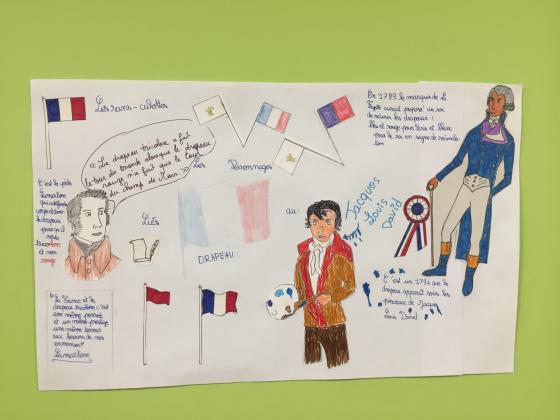 Les sans-culottes
« Le drapeau tricolore a fait
le tour du monde alors que le drapeau
rouge n'a fait que le tour
du Champ de Mars. »
C'est le poète
Lamartine
le drapeau
pour qu'il
soit
tricolore
et non
rouge
Les
Personnages
Liés
au
DRAPEAU:
Jacques
Louis
David
En 1789 le marquis de La
Fayette aurait proposé au roi
de réunir les drapeaux :
bleu et rouge pour Paris et blanc
pour le roi en signe de réconcilia-
tion
C'est en 1794 que le
drapeau apparaît sous les
pinceaux de Jacques
Louis David.
La France et le
drapeau tricolore c'est
une même pensée
et un même prestige
une même terreur
aux besoins de nos
ennemies"
Lamartine